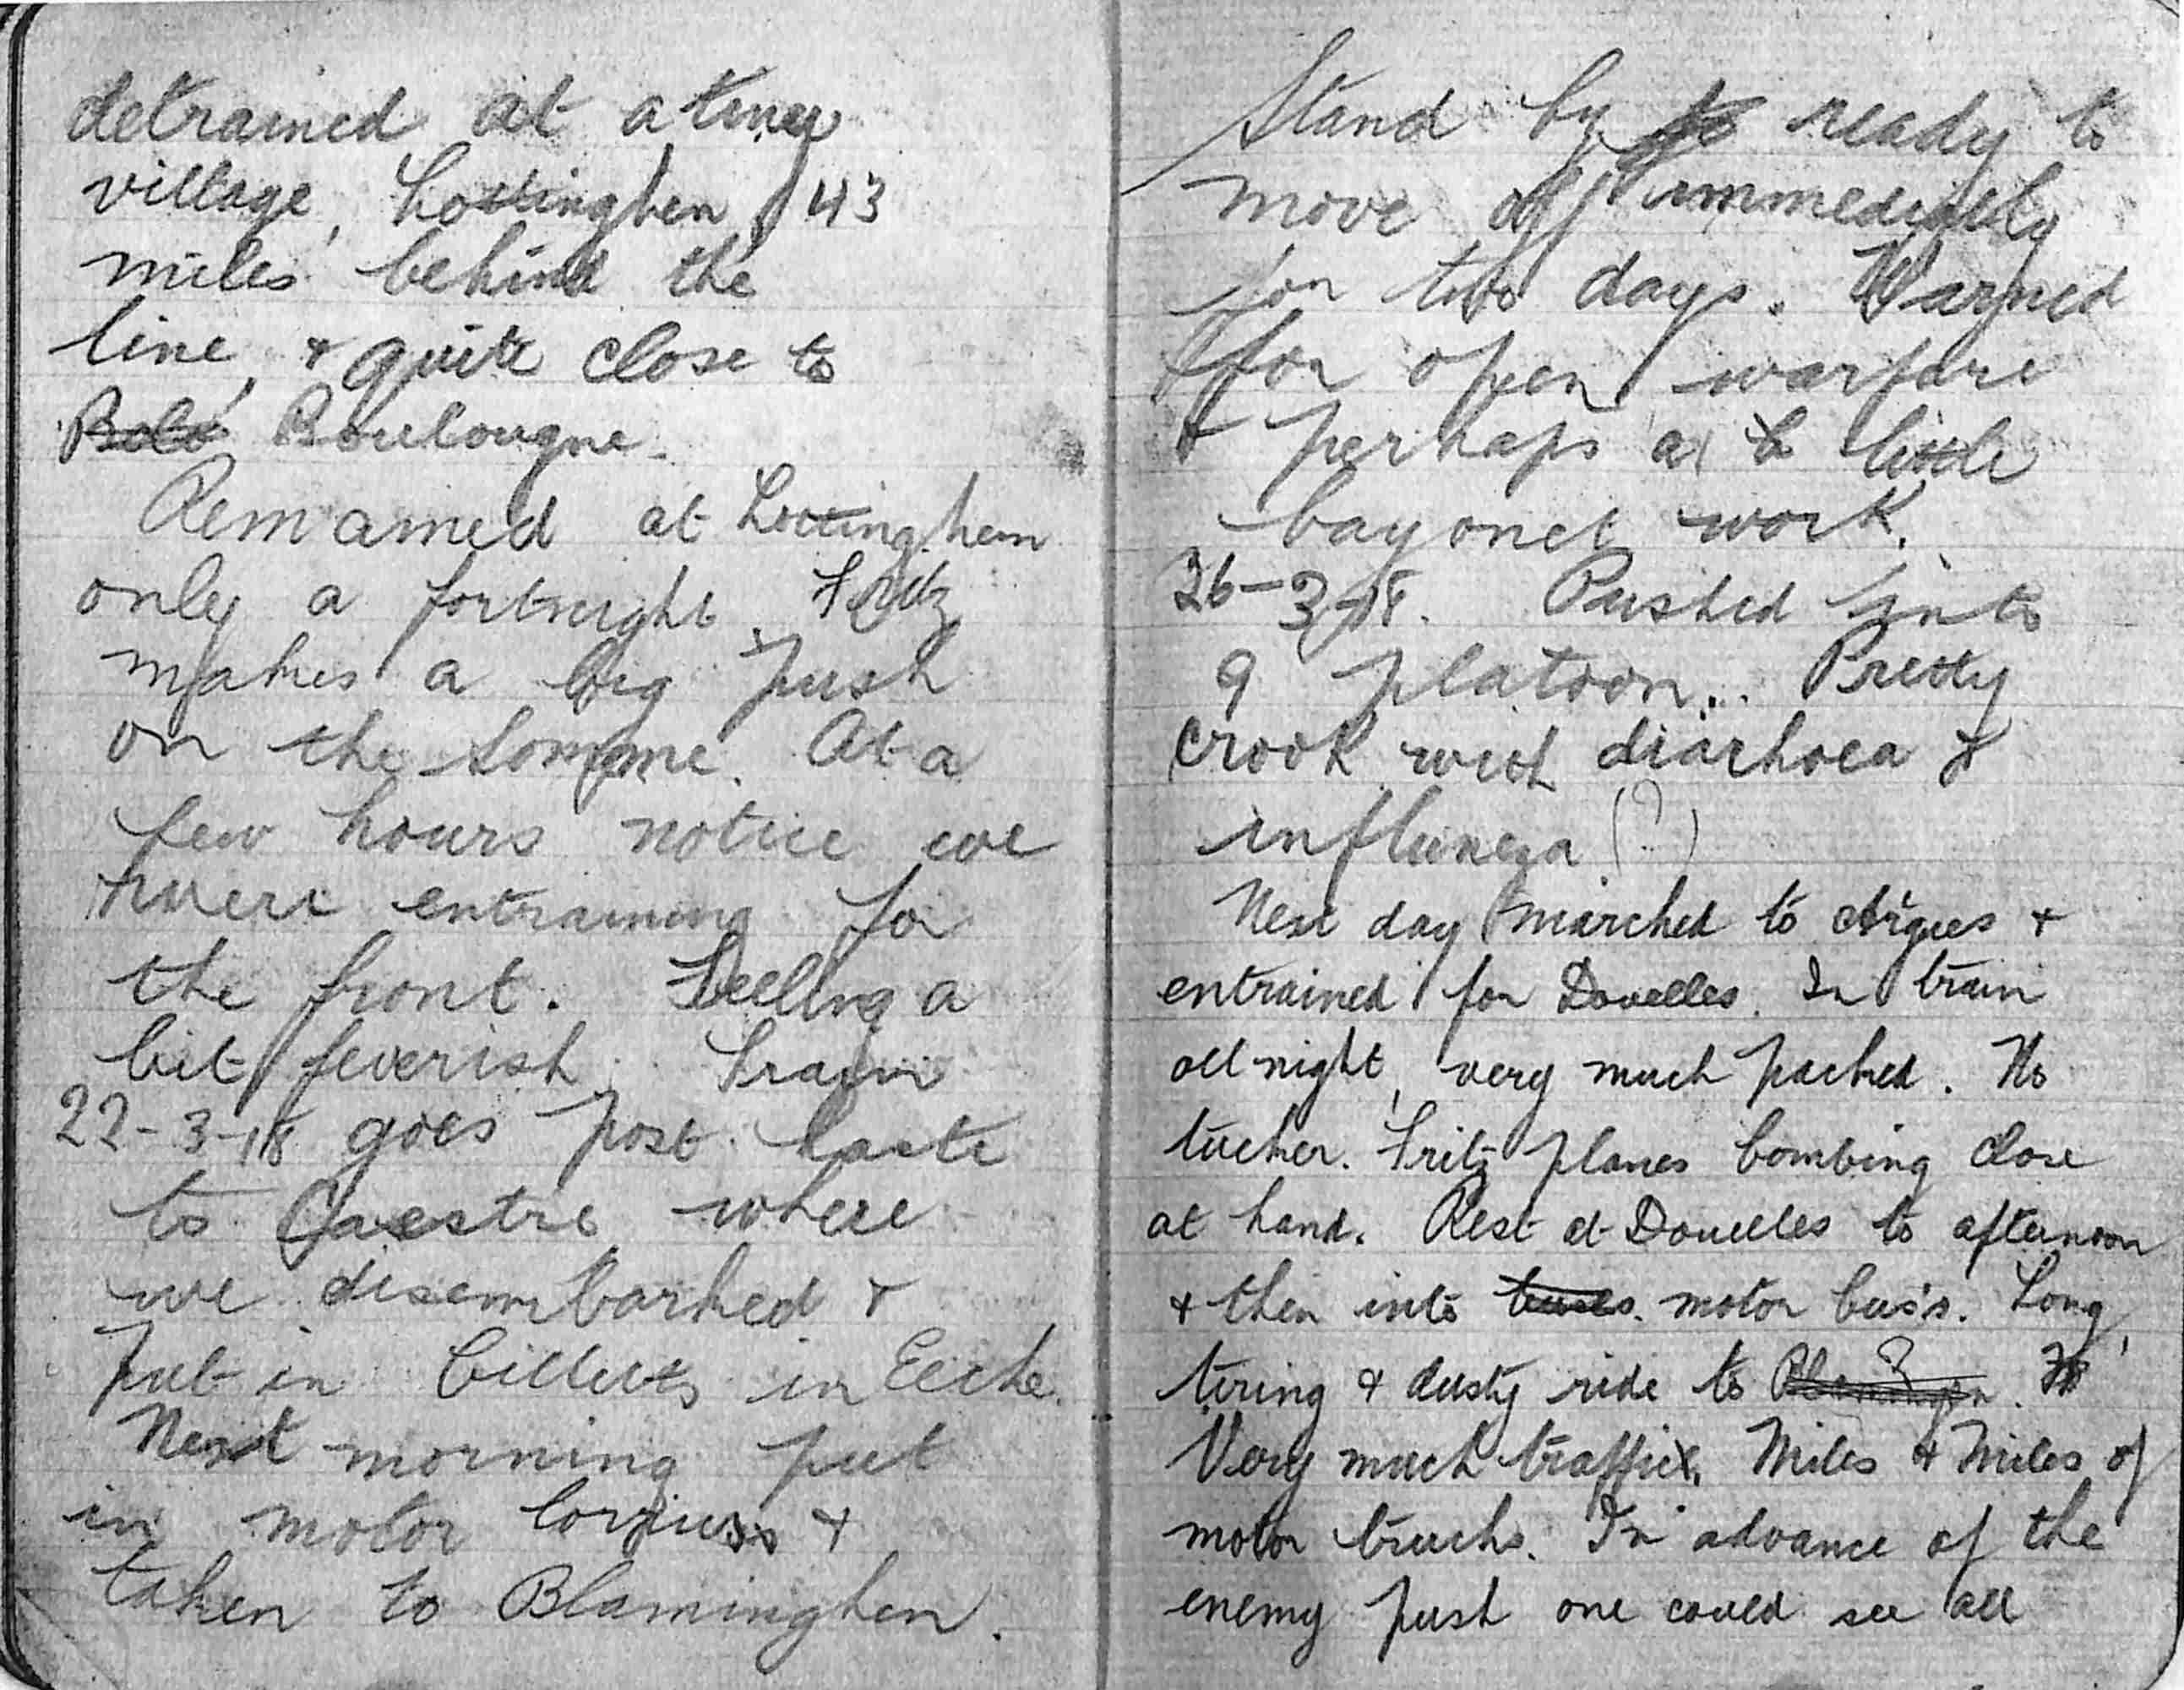 detrained at a tiney
village, Lottinghen, 43
miles behind the
line, + quite close to
Bolo Boulougne.
Remained at Lottinghem
only a fortnight. Fritz
makes a big push
on the Somme. At a
few hours notice we
were entraining for
the front. Feeling a
bit feverish. Train
22-3-18 goes post haste
to Caestre where
we disembarked +
put in billets in Eecke.
Next morning put
in motor lorries +
taken to Blaminghen.
Stand by to ready to
move off immediately
for two days. Warned
for open warfare
+ perhaps a b little
bayonet work.
26-3-18. Pushed into
9 platoon. Pretty
crook with diarhoea &
influneza (?)
Next day marched to Arques +
entrained for Douelles. In train
all night, very much packed. No
tucker. Fritz planes bombing close
at hand. Rest at Douelles to afternoon
+ then into buses. motor bus's. Long,
tiring + dusty ride to
Very much traffic. Miles + Miles of
motor trucks. In advance of the
enemy push one could see all